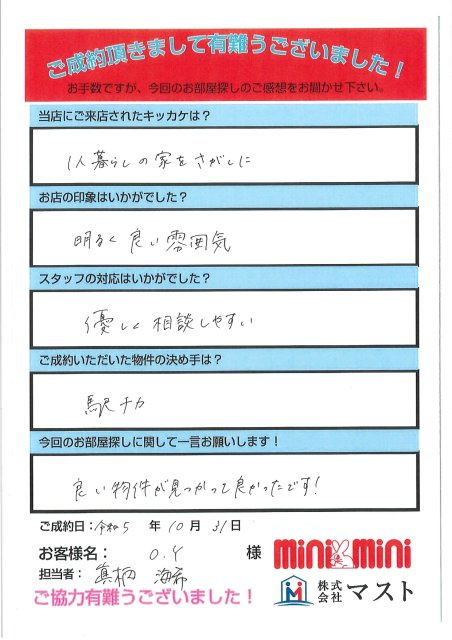 ご成約頂きまして有難うございました！
お手数ですが、今回のお部屋探しのご感想をお聞かせ下さい。
当店にご来店されたキッカケは？
1人暮らしの家をさがしに
お店の印象はいかがでした？
明るく良い雰囲気
スタッフの対応はいかがでした？
優しく相談しやすい
ご成約いただいた物件の決め手は？
駅チカ
今回のお部屋探しに関して一言お願いします！
良い物件が見つかって良かったです！
ご成約日：令和5 年 10 月 31 日
お客様名： O.Y 様
担当者： 真柄 海希
ご協力有難うございました！
mini mini
株式会社 マスト